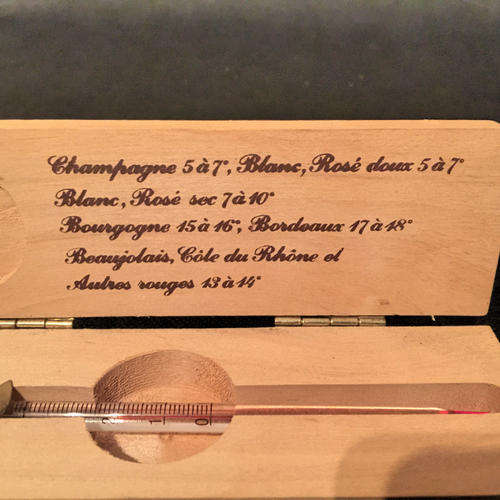 Champagne 5 à 7°, Blanc, Rosé doux 5 à 7°
Blanc, Rosé sec 7 à 10°
Bourgogne 15 à 16°, Bordeaux 17 à 18°
Beaujolais, Côte du Rhône et
Autres rouges 13 à 14°
2 1 0